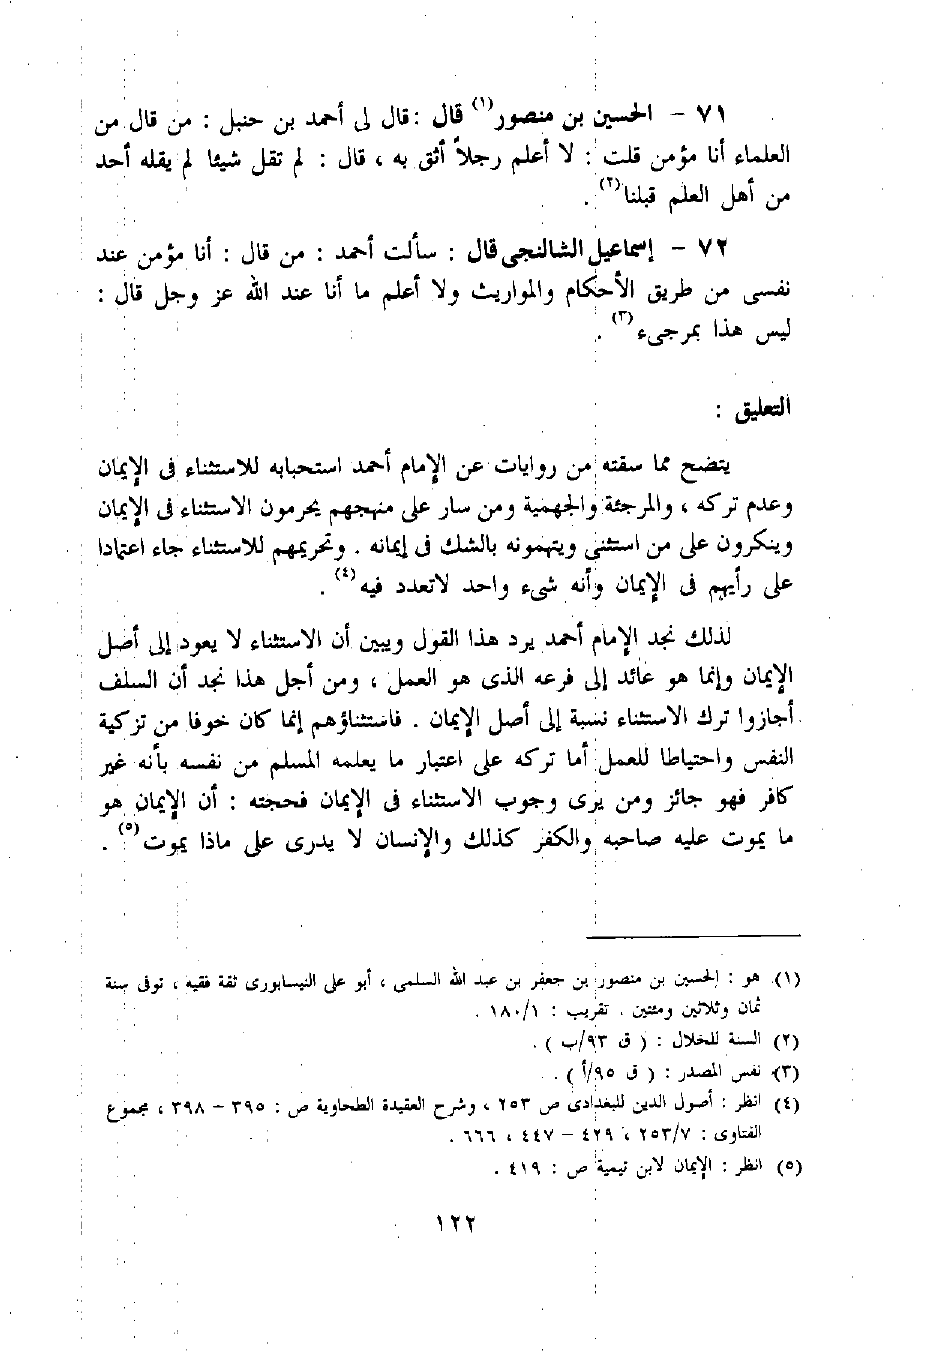 ٧١ – الحسين بن منصور(١) قال : قال لى أحمد بن حنبل : من قال من
العلماء أنا مؤمن قلت : لا أعلم رجلاً أثق به ، قال : لم تقل شيئا لم يقله أحد
من أهل العلم قبلنا(٢) .
٧٢ – إسماعيل الشالنجى قال : سألت أحمد : من قال : أنا مؤمن عند
نفسى من طريق الأحكام والمواريث ولا أعلم ما أنا عند الله عز وجل قال :
ليس هذا بمرجىء(٣) .
التعليق :
يتضح مما سقته من روايات عن الإمام أحمد استحبابه للاستثناء فى الإيمان
وعدم تركه ، والمرجئة والجهمية ومن سار على منهجهم يحرمون الاستثناء فى الإيمان
وينكرون على من استثنى ويتهمونه بالشك فى إيمانه . وتحريمهم للاستثناء جاء اعتمادا
على رأيهم فى الإيمان وأنه شىء واحد لاتعدد فيه(٤) .
لذلك نجد الإمام أحمد يرد هذا القول ويبين أن الاستثناء لا يعود إلى أصل
الإيمان وإنما هو عائد إلى فرعه الذى هو العمل ، ومن أجل هذا نجد أن السلف
أجازوا ترك الاستثناء نسبة إلى أصل الإيمان . فاستثناؤهم إنما كان خوفا من تزكية
النفس واحتياطا للعمل أما تركه على اعتبار ما يعلمه المسلم من نفسه بأنه غير
كافر فهو جائز ومن يرى وجوب الاستثناء فى الإيمان فحجته : أن الإيمان هو
ما يموت عليه صاحبه والكفر كذلك والإنسان لا يدرى على ماذا يموت(٥) .
(١) هو : الحسين بن منصور بن جعفر بن عبد الله السلمى ، أبو على النيسابورى ثقة فقيه ، توفى سنة
ثمان وثلاثين ومئتين . تقريب : ١٨٠/١ .
(٢) السنة للخلال : ( ق ٩٣/ب ) .
(٣) نفس المصدر : ( ق ٩٥/أ ) .
(٤) انظر : أصول الدين للبغدادى ص ٢٥٣ ، وشرح العقيدة الطحاوية ص : ٣٩٥ – ٣٩٨ ، مجموع
الفتاوى : ٢٥٣/٧ ، ٤٢٩ – ٤٤٧ ، ٦٦٦ .
(٥) انظر : الإيمان لابن تيمية ص : ٤١٩ .
١٢٢